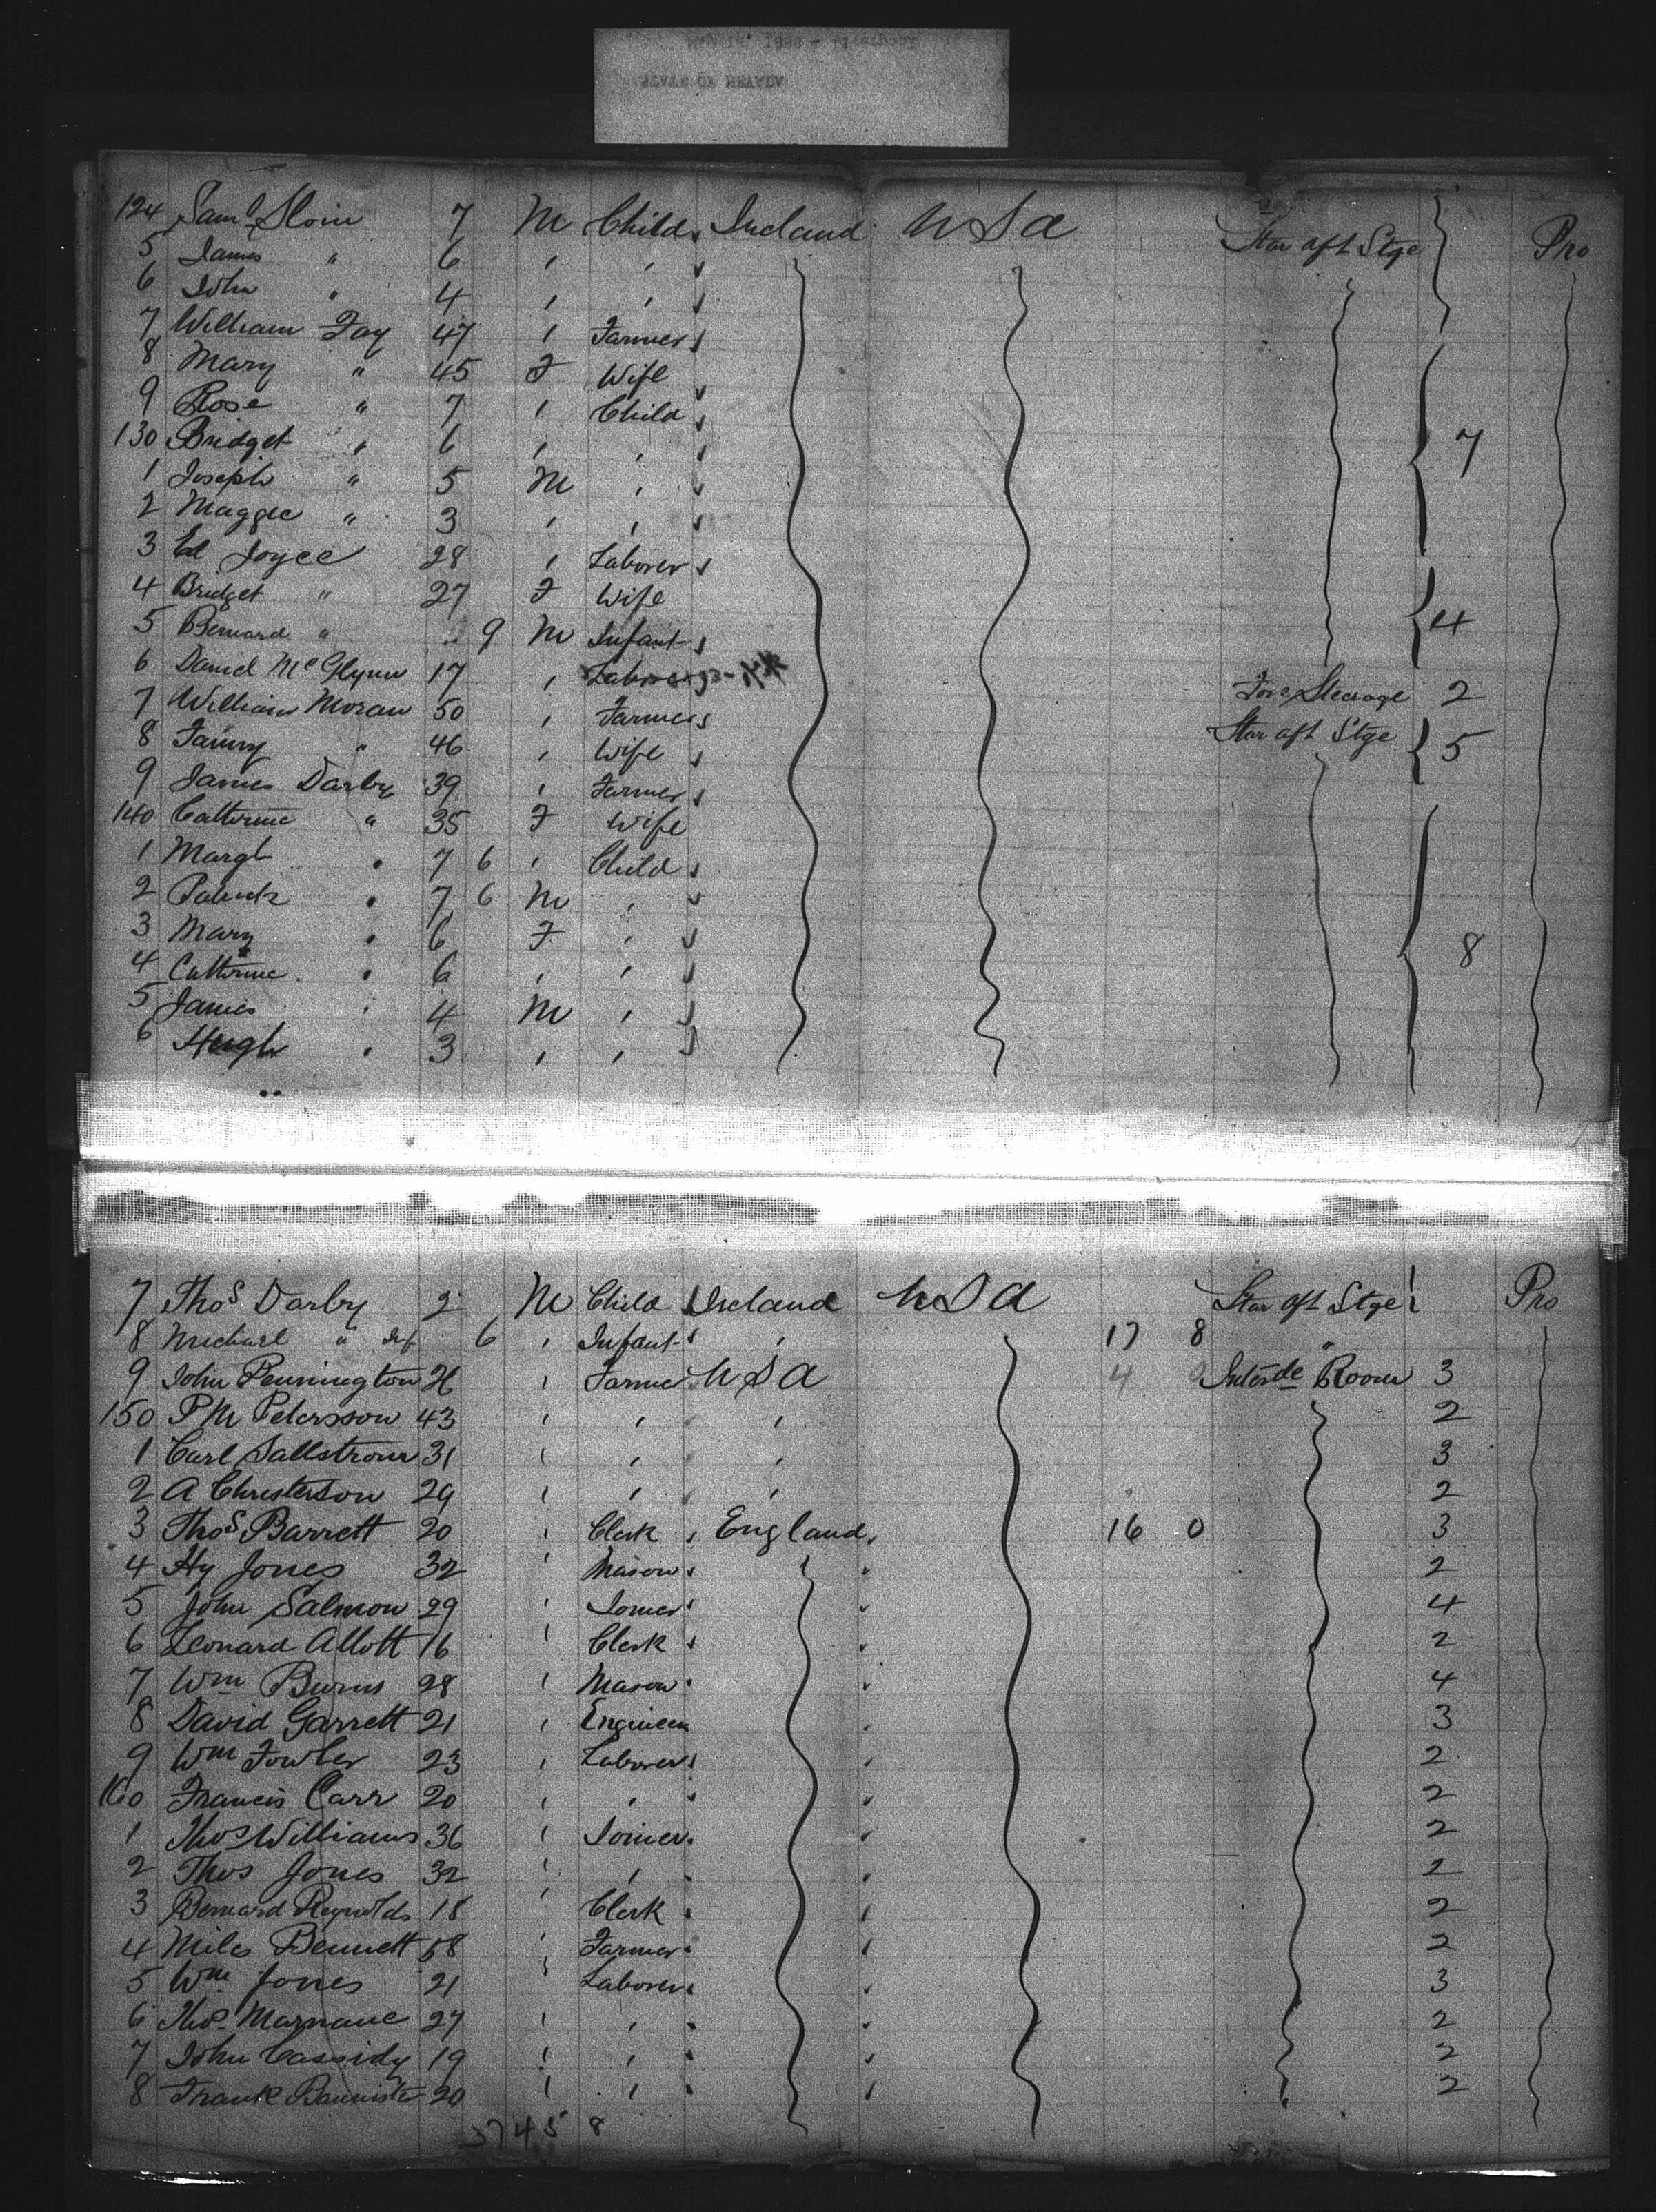 124 Saml Sloin 7 M Child Ireland U S A Star aft Stge Pro
5 James " 6 , ,
6 John " 4 , ,
7 William Fay 47 , Farmer
8 Mary " 45 F Wife
9 Rose " 7 , Child
130 Bridget " 6 , , 7
1 Joseph " 5 M ,
2 Maggie " 3 , ,
3 Ed Joyce 28 , Laborer
4 Bridget " 27 F Wife 4
5 Bernard " 9 M Infant
6 Daniel McGlynn 17 , Laborer Fore Steerage 2
7 William Moran 50 , Farmer Star aft Stge 5
8 Fanny " 46 , Wife
9 James Darby 39 , Farmer
140 Catherine " 35 F Wife
1 Margt " 7 6 , Child
2 Patrick " 7 6 M ,
3 Mary " 6 F , 8
4 Catherine " 6 , ,
5 James " 4 M ,
6 Hugh " 3 , ,
7 Thos Darby 2 M Child Ireland U S A Star aft Stge Pro
8 Michael " Inf 6 , Infant , 17 8 "
9 John Pennington 26 , Farmer U S A 4 Interde Room 3
150 P M Petersson 43 , , , 2
1 Carl Sallstrom 31 , , , 3
2 A Christerson 29 , , , 2
3 Thos Barrett 20 , Clerk England 16 0 3
4 Hy Jones 32 , Mason 2
5 John Salmon 29 , Joiner 4
6 Leonard Allott 16 , Clerk 2
7 Wm Burns 28 , Mason 4
8 David Garrett 21 , Engineer 3
9 Wm Fowler 23 , Laborer 2
160 Francis Carr 20 , , 2
1 Thos Williams 36 , Joiner 2
2 Thos Jones 32 , , 2
3 Bernard Reynolds 18 , Clerk 2
4 Miles Bennett 58 , Farmer 2
5 Wm Jones 21 , Laborer 3
6 Thos Marnane 27 , , 2
7 John Cassidy 19 , , 2
8 Frank Bannister 20 , , 2
3745 8